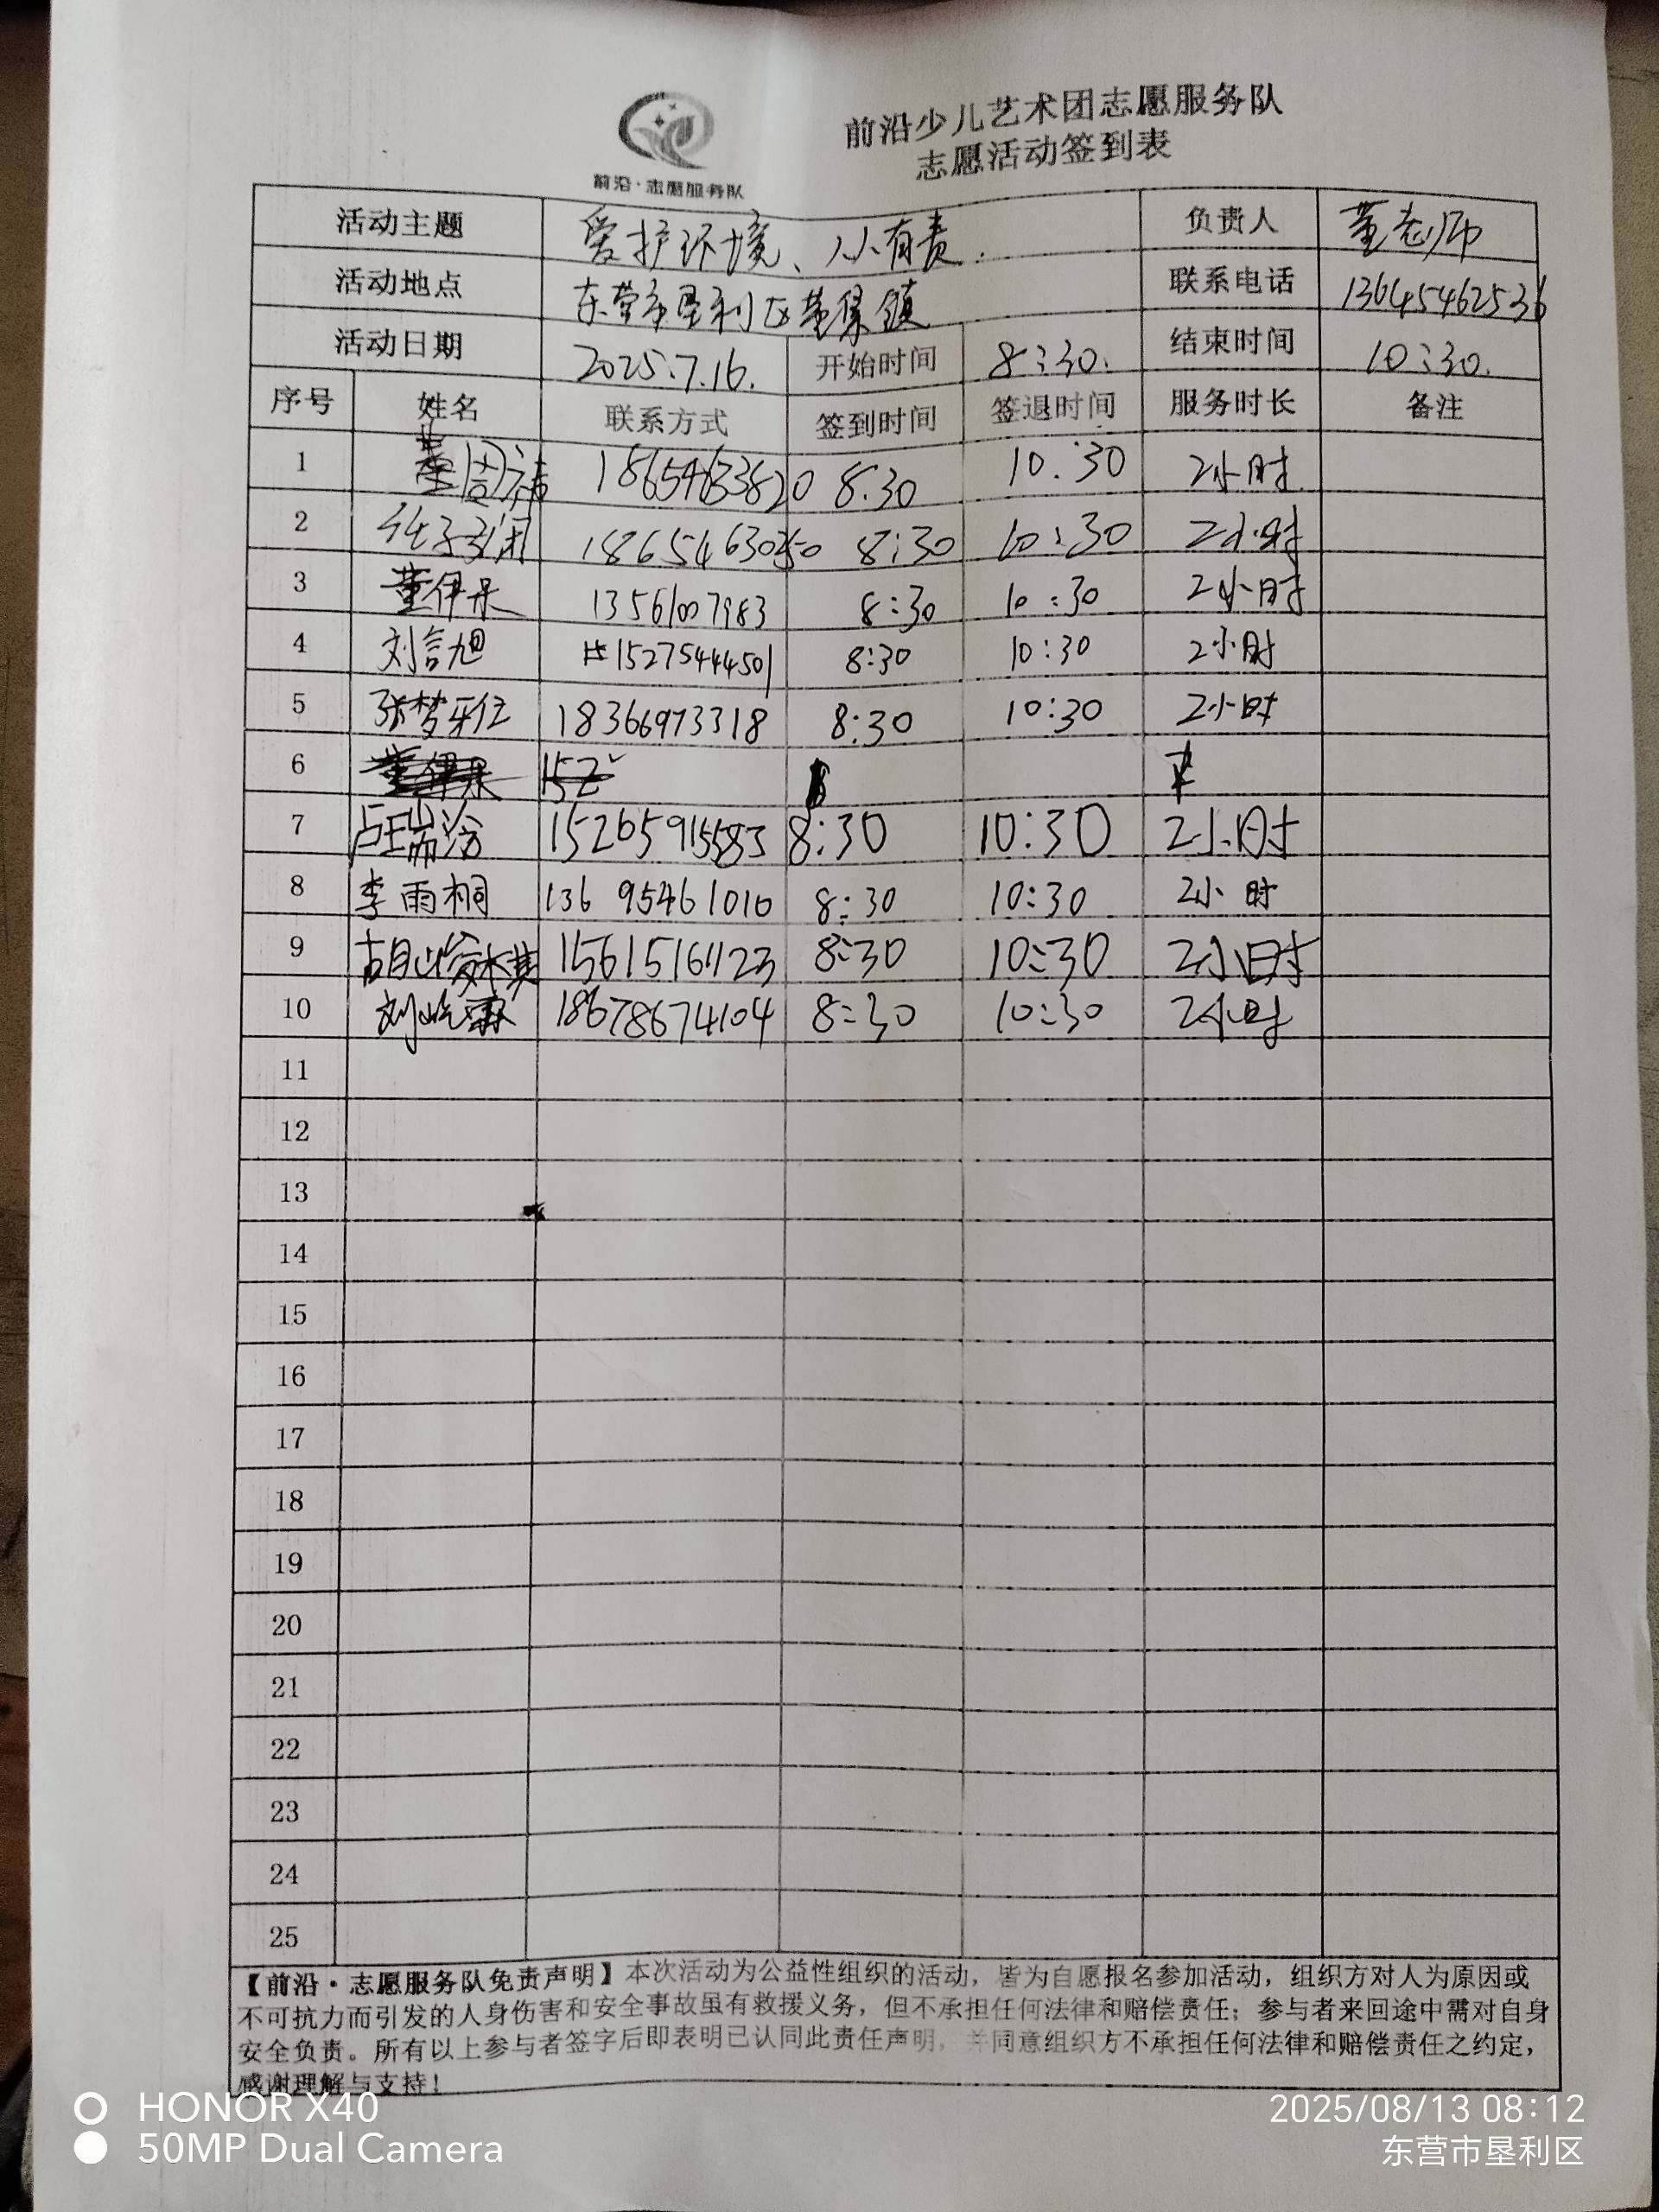 前沿·志愿服务队
前沿少儿艺术团志愿服务队
志愿活动签到表
活动主题 爱护环境、人人有责. 负责人 董老师
活动地点 东营市垦利区董集镇 联系电话 13645462536
活动日期 2025.7.16. 开始时间 8:30. 结束时间 10:30.
序号 姓名 联系方式 签到时间 签退时间 服务时长 备注
1 董周 18654633820 8:30 10:30 2小时
2 8:30 10:30 2小时
3 董伊朵 13561007983 8:30 10:30 2小时
4 刘言旭 15275444501 8:30 10:30 2小时
5 张梦 18366973318 8:30 10:30 2小时
6
7 卢瑞 8:30 10:30 2小时
8 李雨桐 136 95461010 8:30 10:30 2小时
9 胡 15615161123 8:30 10:30 2小时
10 刘屹霖 18678674104 8:30 10:30 2小时
11
12
13
14
15
16
17
18
19
20
21
22
23
24
25
【前沿·志愿服务队免责声明】本次活动为公益性组织的活动，皆为自愿报名参加活动，组织方对人为原因或
不可抗力而引发的人身伤害和安全事故虽有救援义务，但不承担任何法律和赔偿责任；参与者来回途中需对自身
安全负责。所有以上参与者签字后即表明已认同此责任声明，并同意组织方不承担任何法律和赔偿责任之约定，
感谢理解与支持！
HONOR X40
50MP Dual Camera
2025/08/13 08:12
东营市垦利区